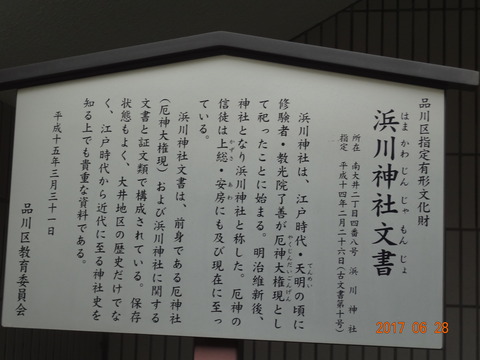 品川区指定有形文化財
はま かわ じん じゃ もん じょ
浜川神社文書
所在 南大井二丁目四番八号 浜川神社
指定 平成十四年二月二十六日(古文書第十号)
浜川神社は、江戸時代・天明の頃に
てんめい
修験者・教光院了善が厄神大権現とし
やくじんだいごんげん
て祀ったことに始まる。明治維新後、
神社となり浜川神社と称した。厄神の
信徒は上総・安房にも及び現在に至っ
かずさ あわ
ている。
浜川神社文書は、前身である厄神社
(厄神大権現)および浜川神社に関する
文書と証文類で構成されている。保存
状態もよく、大井地区の歴史だけでな
く、江戸時代から近代に至る神社史を
知る上でも貴重な資料である。
平成十五年三月三十一日
品川区教育委員会
2017 06 28